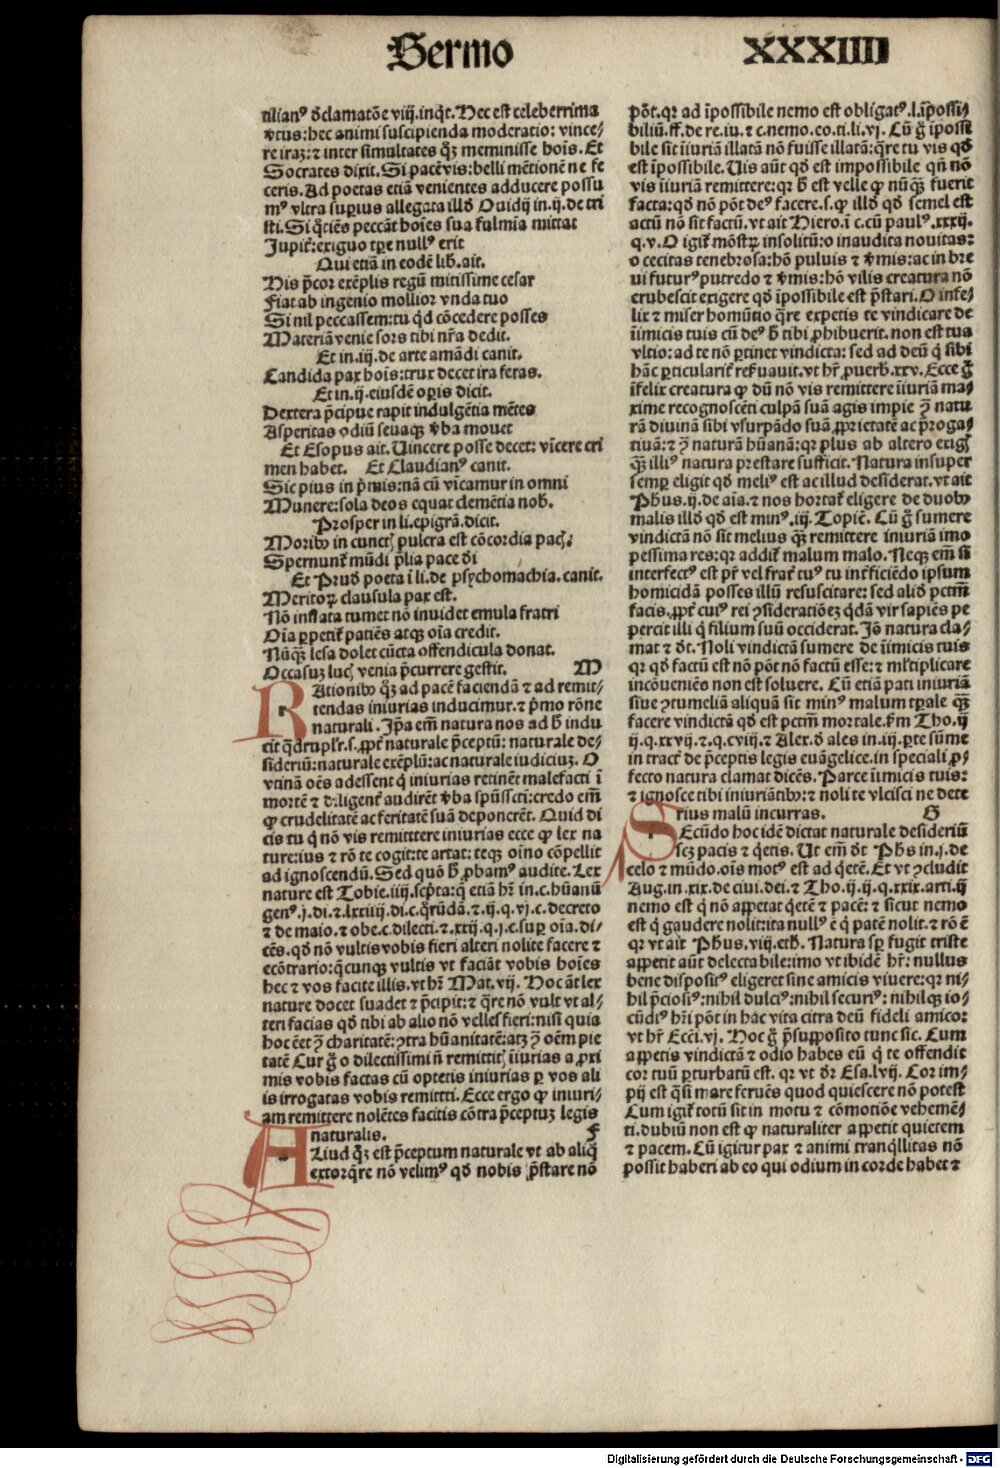 Sermo XXXIIII
tilianꝰ ꝺclamatōe viij. inq̄t. Hec est celeberrima
v̄tus: hec animi suscipienda moderatio: vince⸗
re iraz: ⁊ inter simultates q̄ꝫ meminisse hoīs. Et
Socrates dixit. Si pacē vis: belli mētionē ne fe
ceris. Ad poetas etiā venientes adducere possu
mꝰ vltra superius allegata illꝺ Ouidij in .ij. de tri
sti. Si q̄tiēs peccāt hoīes sua fulmīa mittat
Jupit̄: exiguo tp̄e nullꝰ erit
Qui etiā in eodē lib. ait.
His p̄cor exēplis regū mitissime cesar
Fiat ab ingenio mollior vnda tuo
Si nil peccassem: tu qͥd cōcedere posses
Materiā venie sors tibi nr̄a dedit.
Et in .iij. de arte amādi canit.
Candida pax hoīs: trux decet ira feras.
Et in .ij. eiusdē oꝑis dicit.
Dextera p̄cipue rapit indulgētia mētes
Asperitas odiū seuaqꝫ v̄ba mouet
Et Esopus ait. Vincere posse decet: vīcere cri
men habet. Et Claudianꝰ canit.
Sic pius in p̄mis: nā cū vīcamur in omni
Munere: sola deos equat clemētia nob.
Prosper in li. epigrā. dicit.
Moribꝰ in cunctꝭ pulcra est cōcordia pacꝭ:
Spernunt̄ mūdi p̄lia pace dī
Et Prud poeta ī li. de psychomachia. canit.
Meritoꝝ clausula pax est.
Nō inflata tumet nō inuidet emula fratri
Oīa ꝑpetit̄ patiēs atqꝫ oīa credit.
Nūqꝫ lesa dolet cūcta offendicula donat.
Occasuꝫ lucꝭ venia p̄currere gestit. M
RAtionibꝰ q̄ꝫ ad pacē faciendā ⁊ ad remit⸗
tendas iniurias inducimur. ⁊ p̄mo rōne
naturali. Jp̄a em̄ natura nos ad h̄ indu
cit q̄drupl̄r. s. ꝓpt̄ naturale p̄ceptū: naturale de⸗
sideriū: naturale exēplū: ac naturale iudiciuꝫ. O
vtinā oēs adessent qͥ iniurias retinēt malefacti ī
mortē ⁊ diligent̄ audirēt v̄ba spūsscti: credo em̄
ꝙ crudelitatē ac feritatē suā deponerēt. Quid di
cis tu qͥ nō vis remitttere iniurias ecce ꝙ lex na
ture: ius ⁊ rō te cogit: te artat: teqꝫ oīno cōpellit
ad ignoscendū. Sed quō h̄ ꝓbamꝰ audite. Lex
nature est Tobie. iiij. scp̄ta: q̄ etiā hr̄ in .c. hūanū
genꝰ .j. di. ⁊ lxxiiij. di. c. q̄rūdā. ⁊ .ij. q. vj. c. decreto
⁊ de maio. ⁊ obe. c. dilecti. ⁊ .xxij. q. j. c. suꝑ oīa. di⸗
cēs. qꝺ nō vultis vobis fieri alteri nolite facere ⁊
ecōtrario: q̄cunqꝫ vultis vt faciāt vobis hoīes
hec ⁊ vos facite illis. vt hr̄ Mat. vij. Hoc āt lex
nature docet suadet ⁊ p̄cipit: ⁊ q̄re nō vult vt al⸗
teri facias qꝺ tibi ab alio nō velles fieri: nisi quia
hoc ēēt ꝯ charitatē: ꝯtra hūanitatē: atꝫ ꝯ oēm pie
tatē Cur g̊ o dilectissimi n̄ remittitꝭ īiurias a ꝓxi
mis vobis factas cū optetis iniurias ꝑ vos ali
is irrogatas vobis remittti. Ecce ergo ꝙ iniuri⸗
am remittere nolētes facitis cōtra p̄ceptuꝫ legis
naturalis. F
ALiud q̄ꝫ est p̄ceptum naturale vt ab aliq̄
extorq̄re nō velimꝰ qꝺ nobis p̄stare nō
pōt. qꝛ ad īpossibile nemo est obligatꝰ. l. īpossi⸗
biliū. ff. de re. iu. ⁊ c. nemo. eo. ti. li. vj. Cū g̊ īpossi
bile sit īiuriā illatā nō fuisse illatā: q̄re tu vis qꝺ
est īpossibile. Uis aūt qꝺ est impossibile qn̄ nō
vis īiuriā remittere: qꝛ h̄ est velle ꝙ nūqꝫ fuerit
facta: qꝺ nō pōt deꝰ facere. s. ꝙ illꝺ qꝺ semel est
actū nō sit factū. vt ait Hiero. ī c. cū paulꝰ. xxxij.
q. v. O igit̄ mōstꝝ insolitū: o inaudita nouitas:
o cecitas tenebrosa: hō puluis ⁊ v̄mis: ac in bre
ui futurꝰ putredo ⁊ v̄mis: hō vilis creatura nō
erubescit exigere qꝺ īpossibile est p̄stari. O infe⸗
lix ⁊ miser homūtio q̄re expetis te vindicare de
īimicis tuis cū deꝰ h̄ tibi ꝓhibuerit. non est tua
vltio: ad te nō ꝑtinet vindicta: sed ad deū qͥ sibi
hāc ꝑticularit̄ res̄uauit. vt hr̄ ꝓuerb. xxv. Ecce g̊
īfelix creatura ꝙ dū nō vis remittere īiuriā ma⸗
xime recognoscēti culpā suā agis impie ꝯ natu
rā diuinā sibi vsurpādo suā ꝓprietatē ac p̄roga⸗
tiuā: ⁊ ꝯ naturā hūanā: qꝛ plus ab altero exigꝭ
qꝫ illiꝰ natura prestare sufficit. Natura insuper
semꝑ eligit qꝺ meliꝰ est ac illud desiderat. vt ait
Phus. ij. de aīa. ⁊ nos hortat̄ eligere de duobꝰ
malis illꝺ qꝺ est minꝰ. iij. Topic̄. Cū g̊ sumere
vindictā nō sit melius qꝫ remittere iniuriā imo
pessima res: qꝛ addit̄ malum malo. Neqꝫ em̄ si
interfectꝰ est pr̄ vel frat̄ tuꝰ tu int̄ficiēdo ipsum
homicidā posses illū resuscitare: sed aliꝺ pctm̄
facis. ꝓpt̄ cuiꝰ rei ꝯsideratiōeꝫ q̄dā vir sapiēs pe
percit illi qͥ filium suū occiderat. Jō natura cla⸗
mat ⁊ ꝺt. Noli vindictā sumere de īimicis tuis
qꝛ qꝺ factū est nō pōt nō factū esse: ⁊ ml̄tiplicare
incōueniēs non est soluere. Cū etiā pati iniuriā
siue ꝯtumeliā aliquā sit minꝰ malum tꝑale qꝫ
facere vindictā qꝺ est pctm̄ mortale. s̄m Tho. ij
ij. q. xxvij. ⁊ .q. cviij. ⁊ Alex. ꝺ ales in .iij. ꝑte sūme
in tract̄ de p̄ceptis legis euāgelice. in speciali ꝓ⸗
fecto natura clamat dicēs. Parce īimicis tuis:
⁊ ignosce tibi iniuriātibꝰ: ⁊ noli te vlcisci ne dete
rius malū incurras. G
SEcūdo hoc idē dictat naturale desideriū
scꝫ pacis ⁊ q̄etis. Ut em̄ ꝺt Phs in .j. de
celo ⁊ mūdo. oīs motꝰ est ad q̄etē. Et vt ꝯcludit
Aug. in .xix. de ciui. dei. ⁊ Tho. ij. ij. q. xxix. arti. ij
nemo est qͥ nō appetat q̄etē ⁊ pacē: ⁊ sicut nemo
est qͥ gaudere nolit: ita nullꝰ ē qͥ patē nolit. ⁊ rō ē
qꝛ vt ait Phus. viij. eth. Natura sꝑ fugit triste
appetit aūt delectabile: imo vt ibidē hr̄: nullus
bene dispositꝰ eligeret sine amicis viuere: qꝛ ni⸗
hil p̄ciosiꝰ: nihil dulciꝰ: nihil securiꝰ: nihilqꝫ io⸗
cūdiꝰ hr̄i pōt in hac vita citra deū fideli amico:
vt hr̄ Ecci. vj. Hoc g̊ p̄supposito tunc sic. Cum
appetis vindictā ⁊ odio habes eū qͥ te offendit
cor tuū ꝑturbatū est. qꝛ vt ꝺr Esa. lvij. Cor im⸗
pij est q̄si mare feruēs quod quiescere nō potest
Cum igit̄ totū sit in motu ⁊ cōmotiōe vehemē⸗
ti. dubiū non est ꝙ naturaliter appetit quietem
⁊ pacem. Cū igitur pax ⁊ animi tranqͥllitas nō
possit haberi ab eo qui odium in corde habet ⁊
Digitalisierung gefördert durch die Deutsche Forschungsgemeinschaft - DFG